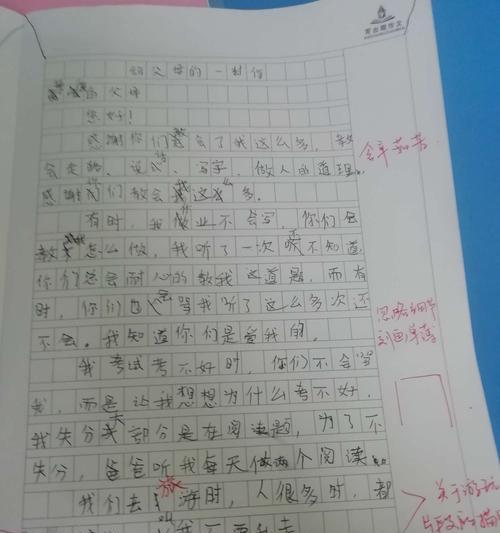 给父母的一封信
父母
您好！
感谢你们教会了我这么多，教
会走路、说话、写字、做人的道理。
感谢你们教会我这么多。
有时，我作业不会写，你们会
教我怎么做，我听了一次听不知道，
你们总会耐心的教我这道题，而有
时，你们也会骂我听了这么多次还
不会。我知道你们是爱我的。
我考试考不好时，你们不会骂
我，而是让我想想为什么考不好，
我失分大部分是在阅读题，为了不
失分，爸爸听我每天做两个阅读。
我们去 海时，人很多时，都
我不要乱走
忽略细节
刻画
关于游玩
片段的描